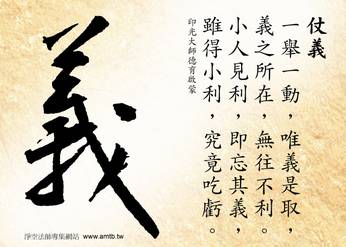 仗義
一舉一動，唯義是取，
義之所在，無往不利。
小人見利，即忘其義，
雖得小利，究竟吃虧。
印光大師德育啟蒙
義
淨空法師專集網站 www.amtb.tw